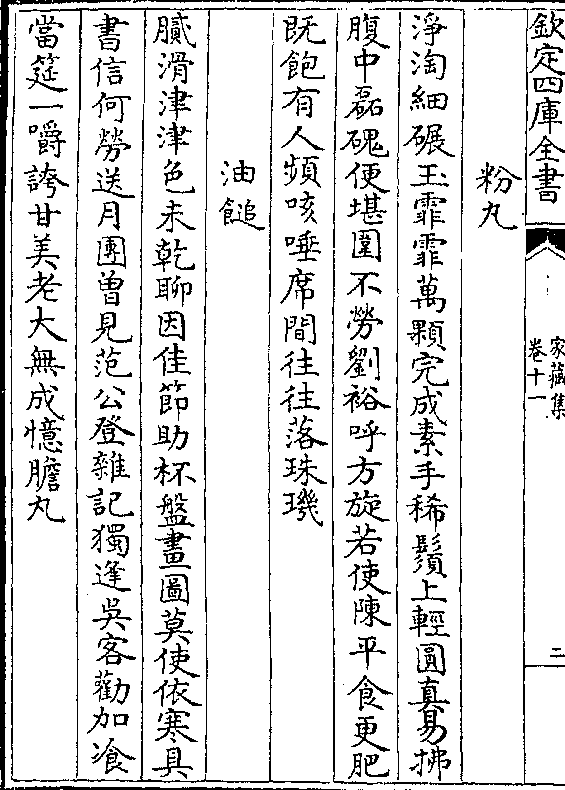 欽定四庫全書
家藏集
卷十一
二
粉丸
淨淘細碾玉霏霏萬顆完成素手稀鬚上輕圓真易拂
腹中磊磈便堪圍不勞劉裕呼方旋若使陳平食更肥
既飽有人頻咳唾席間往往落珠璣
油䭔
膩滑津津色未乾聊因佳節助杯盤畫圖莫使依寒具
書信何勞送月團曾見范公登雜記獨逢吳客勸加飡
當筵一嚼誇甘美老大無成憶膽丸